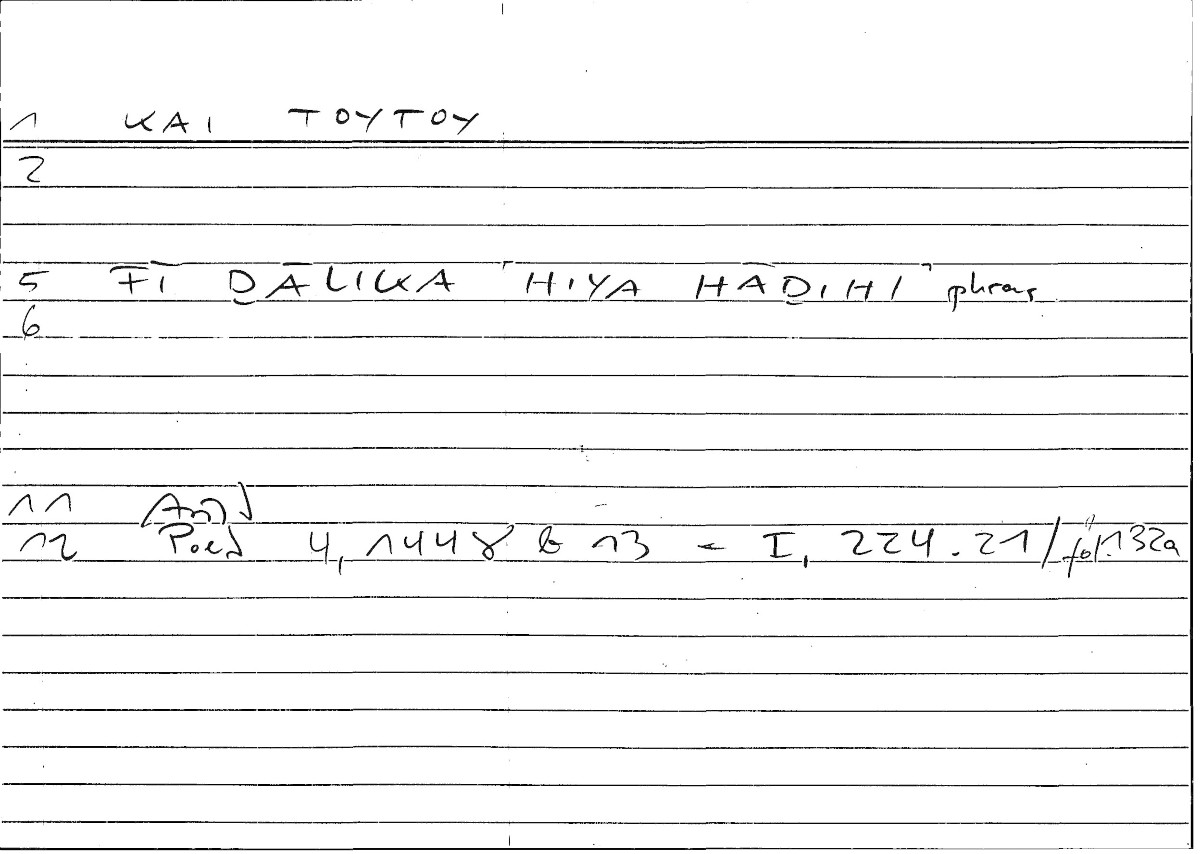 1 KAI TOYTOY
2
5 FĪ ḎĀLIKA ʿHIYA HĀḎIHIʾ phras
6
11 Arist
12 Poet 4, 1448 b 13 = I, 224.21/fol.132a